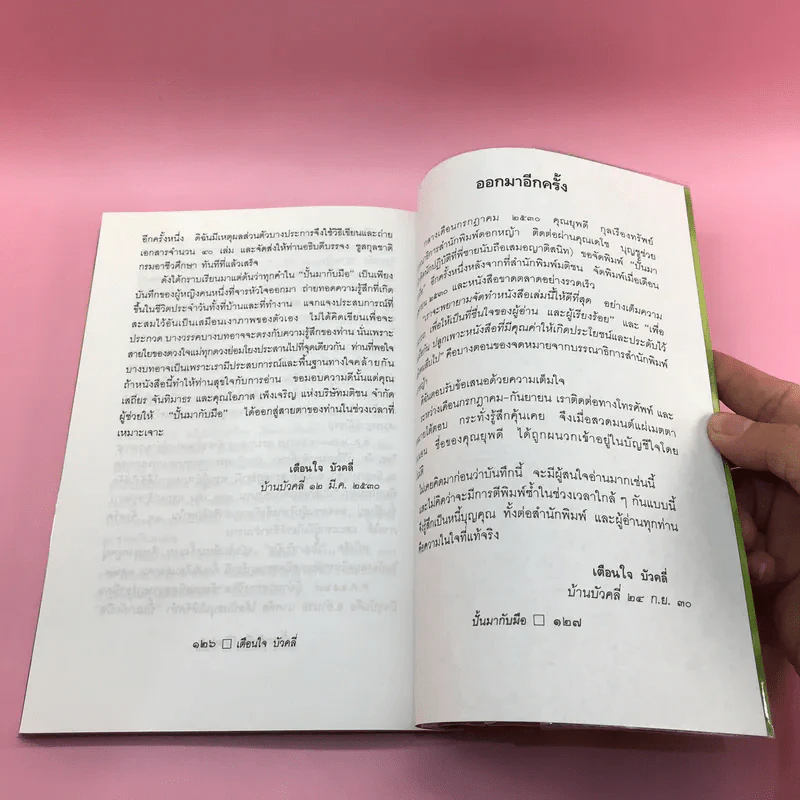 อีกครั้งหนึ่ง ดิฉันมีเหตุผลส่วนตัวบางประการจึงใช้วิธีเขียนและถ่าย
เอกสารจำนวน ๔๐ เล่ม และจัดส่งให้ท่านอธิบดีบรรจง ชูสกุลชาติ
กรมอาชีวศึกษา ทันทีที่แล้วเสร็จ
ดังได้กราบเรียนมาแต่ต้นว่าทุกคำใน “ปั้นมากับมือ” เป็นเพียง
บันทึกของผู้หญิงคนหนึ่งที่จารหัวใจออกมา ถ่ายทอดความรู้สึกที่เกิด
ขึ้นในชีวิตประจำวันทั้งที่บ้านและที่ทำงาน แจกแจงประสบการณ์ที่
สะสมไว้อันเป็นเสมือนเงาภาพของตัวเอง ไม่ได้คิดเขียนเพื่อจะ
ประกวด บางวรรคบางบทอาจจะตรงกับความรู้สึกของท่าน นั่นเพราะ
สายใยของดวงใจแม่ทุกดวงย่อมโยงประสานไปที่จุดเดียวกัน ท่านที่พอใจ
บางบทอาจเป็นเพราะเรามีประสบการณ์และพื้นฐานทางใจคล้ายกัน
ถ้าหนังสือนี้ทำให้ท่านสุขใจกับการอ่าน ขอมอบความดีนั้นแด่คุณ
เสถียร จันทิมาธร และคุณโอภาส เพ็งเจริญ แห่งบริษัทมติชน จำกัด
ผู้ช่วยให้ “ปั้นมากับมือ” ได้ออกสู่สายตาของท่านในช่วงเวลาที่
เหมาะเจาะ
เตือนใจ บัวคลี่
บ้านบัวคลี่ ๑๒ มี.ค. ๒๕๓๐
๑๒๖ □ เตือนใจ บัวคลี่
ออกมาอีกครั้ง
กลางเดือนกรกฎาคม ๒๕๓๐ คุณยุพดี กุลเรืองทรัพย์
บรรณาธิการสำนักพิมพ์ดอกหญ้า ติดต่อผ่านคุณเดโช บุญชูช่วย
ที่พี่ชายนับถือเสมอญาติสนิท) ขอจัดพิมพ์ “ปั้นมา
อีกครั้งหนึ่งหลังจากที่สำนักพิมพ์มติชน จัดพิมพ์เมื่อเดือน
๒๕๓๐ และหนังสือขาดตลาดอย่างรวดเร็ว
“เราจะพยายามจัดทำหนังสือเล่มนี้ให้ดีที่สุด อย่างเต็มความ
เพื่อให้เป็นที่ชื่นใจของผู้อ่าน และผู้เรียงร้อย” และ “เพื่อ
ปลูกเพาะหนังสือที่มีคุณค่าให้เกิดประโยชน์และประดับไว้
คือบางตอนของจดหมายจากบรรณาธิการสำนักพิมพ์
ดิฉันตอบรับข้อเสนอด้วยความเต็มใจ
ระหว่างเดือนกรกฎาคม-กันยายน เราติดต่อทางโทรศัพท์ และ
กระทั่งรู้สึกคุ้นเคย จึงเมื่อสวดมนต์แผ่เมตตา
ชื่อของคุณยุพดี ได้ถูกผนวกเข้าอยู่ในบัญชีใจโดย
ไม่เคยคิดมาก่อนว่าบันทึกนี้ จะมีผู้สนใจอ่านมากเช่นนี้
และไม่คิดว่าจะมีการตีพิมพ์ซ้ำในช่วงเวลาใกล้ ๆ กันแบบนี้
จึงรู้สึกเป็นหนี้บุญคุณ ทั้งต่อสำนักพิมพ์ และผู้อ่านทุกท่าน
ด้วยความในใจที่แท้จริง
เตือนใจ บัวคลี่
บ้านบัวคลี่ ๒๔ ก.ย. ๓๐
ปั้นมากับมือ □ ๑๒๗